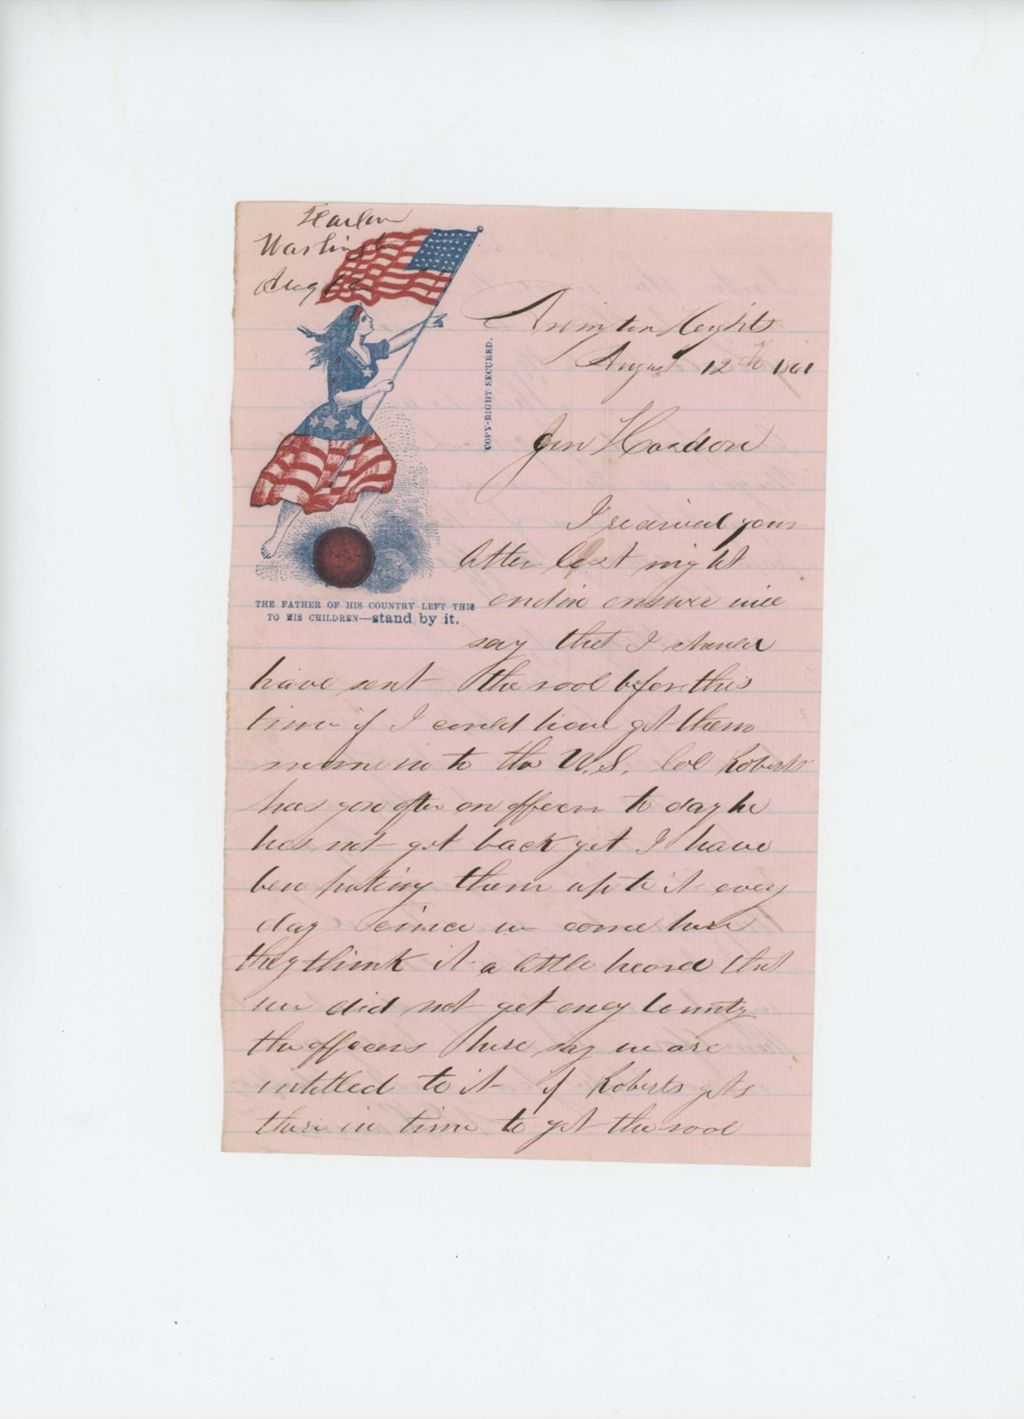 Harlow
Washingt
Aug 12
Arington Heights
August 12th 1861
COPY-RIGHT SECURED.
Gen Hoasdon
I received your
letter last night
and in answer will
say that I should
THE FATHER OF HIS COUNTRY LEFT THIS
TO HIS CHILDREN—stand by it.
have sent the rool before this
time if I could have got them
in to the U.S. Col Roberts
has gon after an officer to day he
has not got back yet I have
ben puting them up to it every
day since we come here
they think it a little heard that
we did not get eney bounty
the officers here say we are
intitled to it if Roberts gets
there in time to get the rool